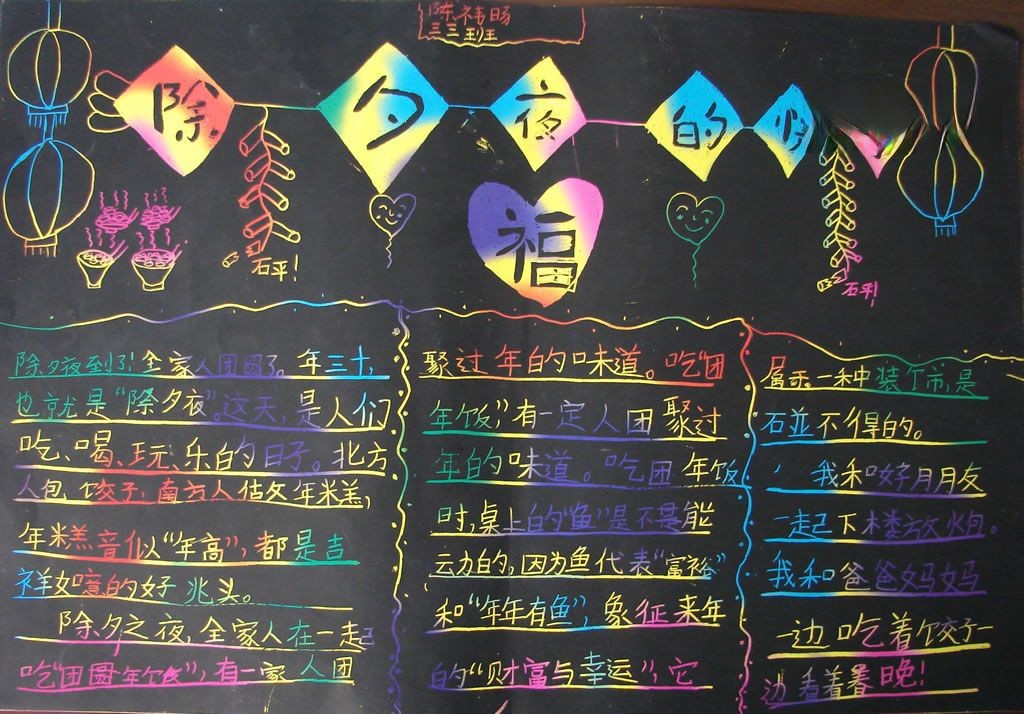 陈祎旸
三三班
除夕夜的
福
砰!
砰!
除夕夜到了!全家人团圆了。年三十,
也就是“除夕夜”。这天,是人们
吃、喝、玩、乐的日子。北方
人包饺子,南方人做年糕,
年糕音似“年高”,都是吉
祥如意的好兆头。
除夕之夜,全家人在一起
吃“团圆年饭”,有一家人团
聚过年的味道。吃“团
年饭”,有一定人团聚过
年的味道。吃团年饭
时,桌上的“鱼”是不能
动的,因为鱼代表“富裕”
和“年年有鱼”,象征来年
的“财富与幸运”,它
属于一种装饰,是
碰不得的。
我和好朋友
一起下楼放炮。
我和爸爸妈妈
一边吃着饺子一
边看着春晚!